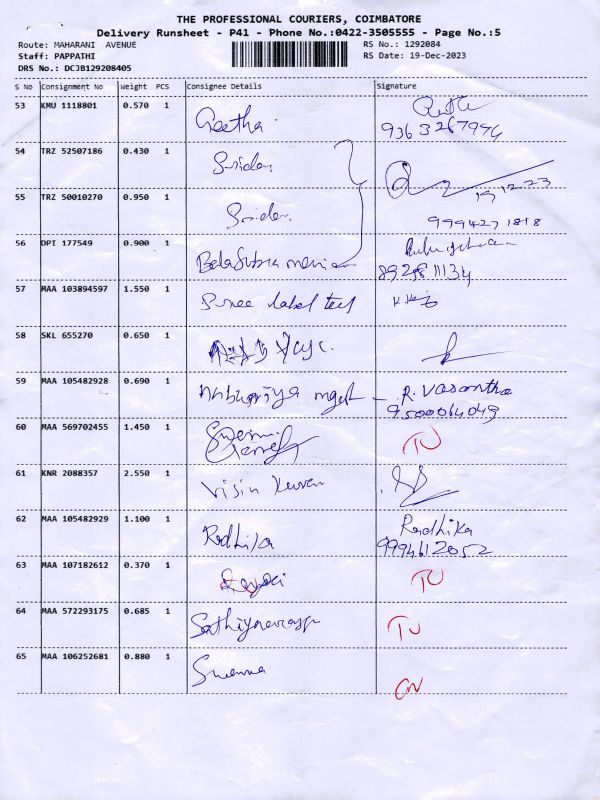 THE PROFESSIONAL COURIERS, COIMBATORE
Delivery Runsheet - P41 - Phone No.:0422-3505555 - Page No.:5
Route: MAHARANI AVENUE RS No.: 1292084
Staff: PAPPATHI RS Date: 19-Dec-2023
DRS No.: DCJB129208405
S No Consignment No Weight PCS Consignee Details Signature
53 KMU 1118801 0.570 1 Geetha
9363267994
54 TRZ 52507186 0.430 1 Sridar
19.12.23
55 TRZ 50010270 0.950 1 Sridar
9994271818
56 DPI 177549 0.900 1 BalaSubramanian
57 MAA 103894597 1.550 1 Sree label tex
58 SKL 655270 0.650 1
59 MAA 105482928 0.690 1 R. Vasantha
9500064049
60 MAA 569702455 1.450 1 TU
61 KNR 2088357 2.550 1
62 MAA 105482929 1.100 1 Radhika Radhika
9994612052
63 MAA 107182612 0.370 1 TU
64 MAA 572293175 0.685 1 TU
65 MAA 106252681 0.880 1